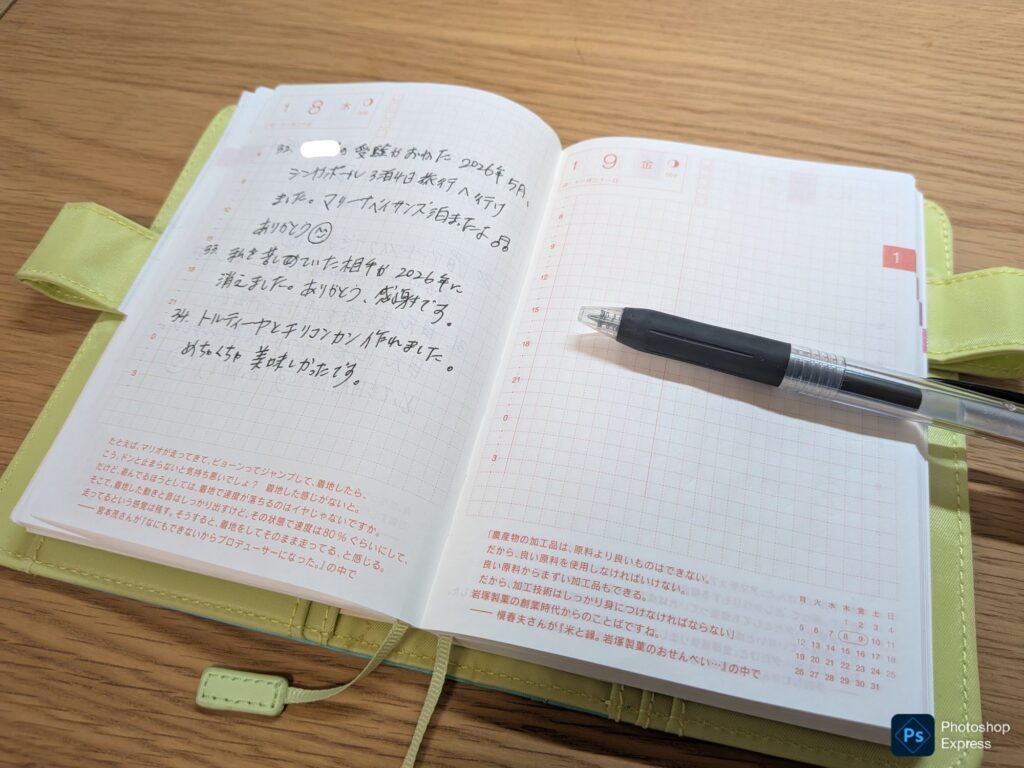 1 8 木
32. の受験がおわた 2026年5月、
シンガポール3泊4日旅行へ行け
ました。マリーナベイサンズ泊またよ
ありがとう
33. 私を苦しめていた相手が2026年に
消えました。ありがとう、感謝です。
34. トルティーヤとチリコンカン作れました。
めちゃくちゃ美味しかったです。
3
たとえば、マリオが走ってきて、ピョーンってジャンプして、着地したら、
こう、ドンと止まらないと気持ち悪いでしょ? 着地した感じがないと。
だけど、遊んでるほうとしては、着地で速度が落ちるのはイヤじゃないですか。
そこで、着地した動きと音はしっかり出すけど、その状態で速度は80%ぐらいにして、
走ってるという感覚は残す。そうすると、着地をしてそのまま走ってる、と感じる。
——宮本茂さんが『なにもできないからプロデューサーになった。』の中で
1 9 金
1
9
12
15
18
21
0
3
「農産物の加工品は、原料より良いものはできない。
だから、良い原料を使用しなければいけない。
良い原料からまずい加工品もできる。
だから、加工技術はしっかり身につけなければならない」
岩塚製菓の創業時代からのことばですね。
——槇春夫さんが『米と縁。岩塚製菓のおせんべい…』の中で
月 火 水 木 金 土 日
1 2 3 4
5 6 7 8 9 10 11
12 13 14 15 16 17 18
19 20 21 22 23 24 25
26 27 28 29 30 31
Ps Photoshop
Express